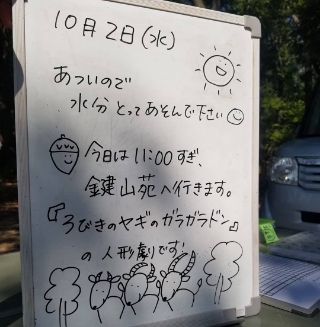 10月2日(水)
あついので
水分とってあそんで下さい
今日は11:00すぎ、
鍵山苑へ行きます。
『3びきのヤギのガラガラドン』
の人形劇です!